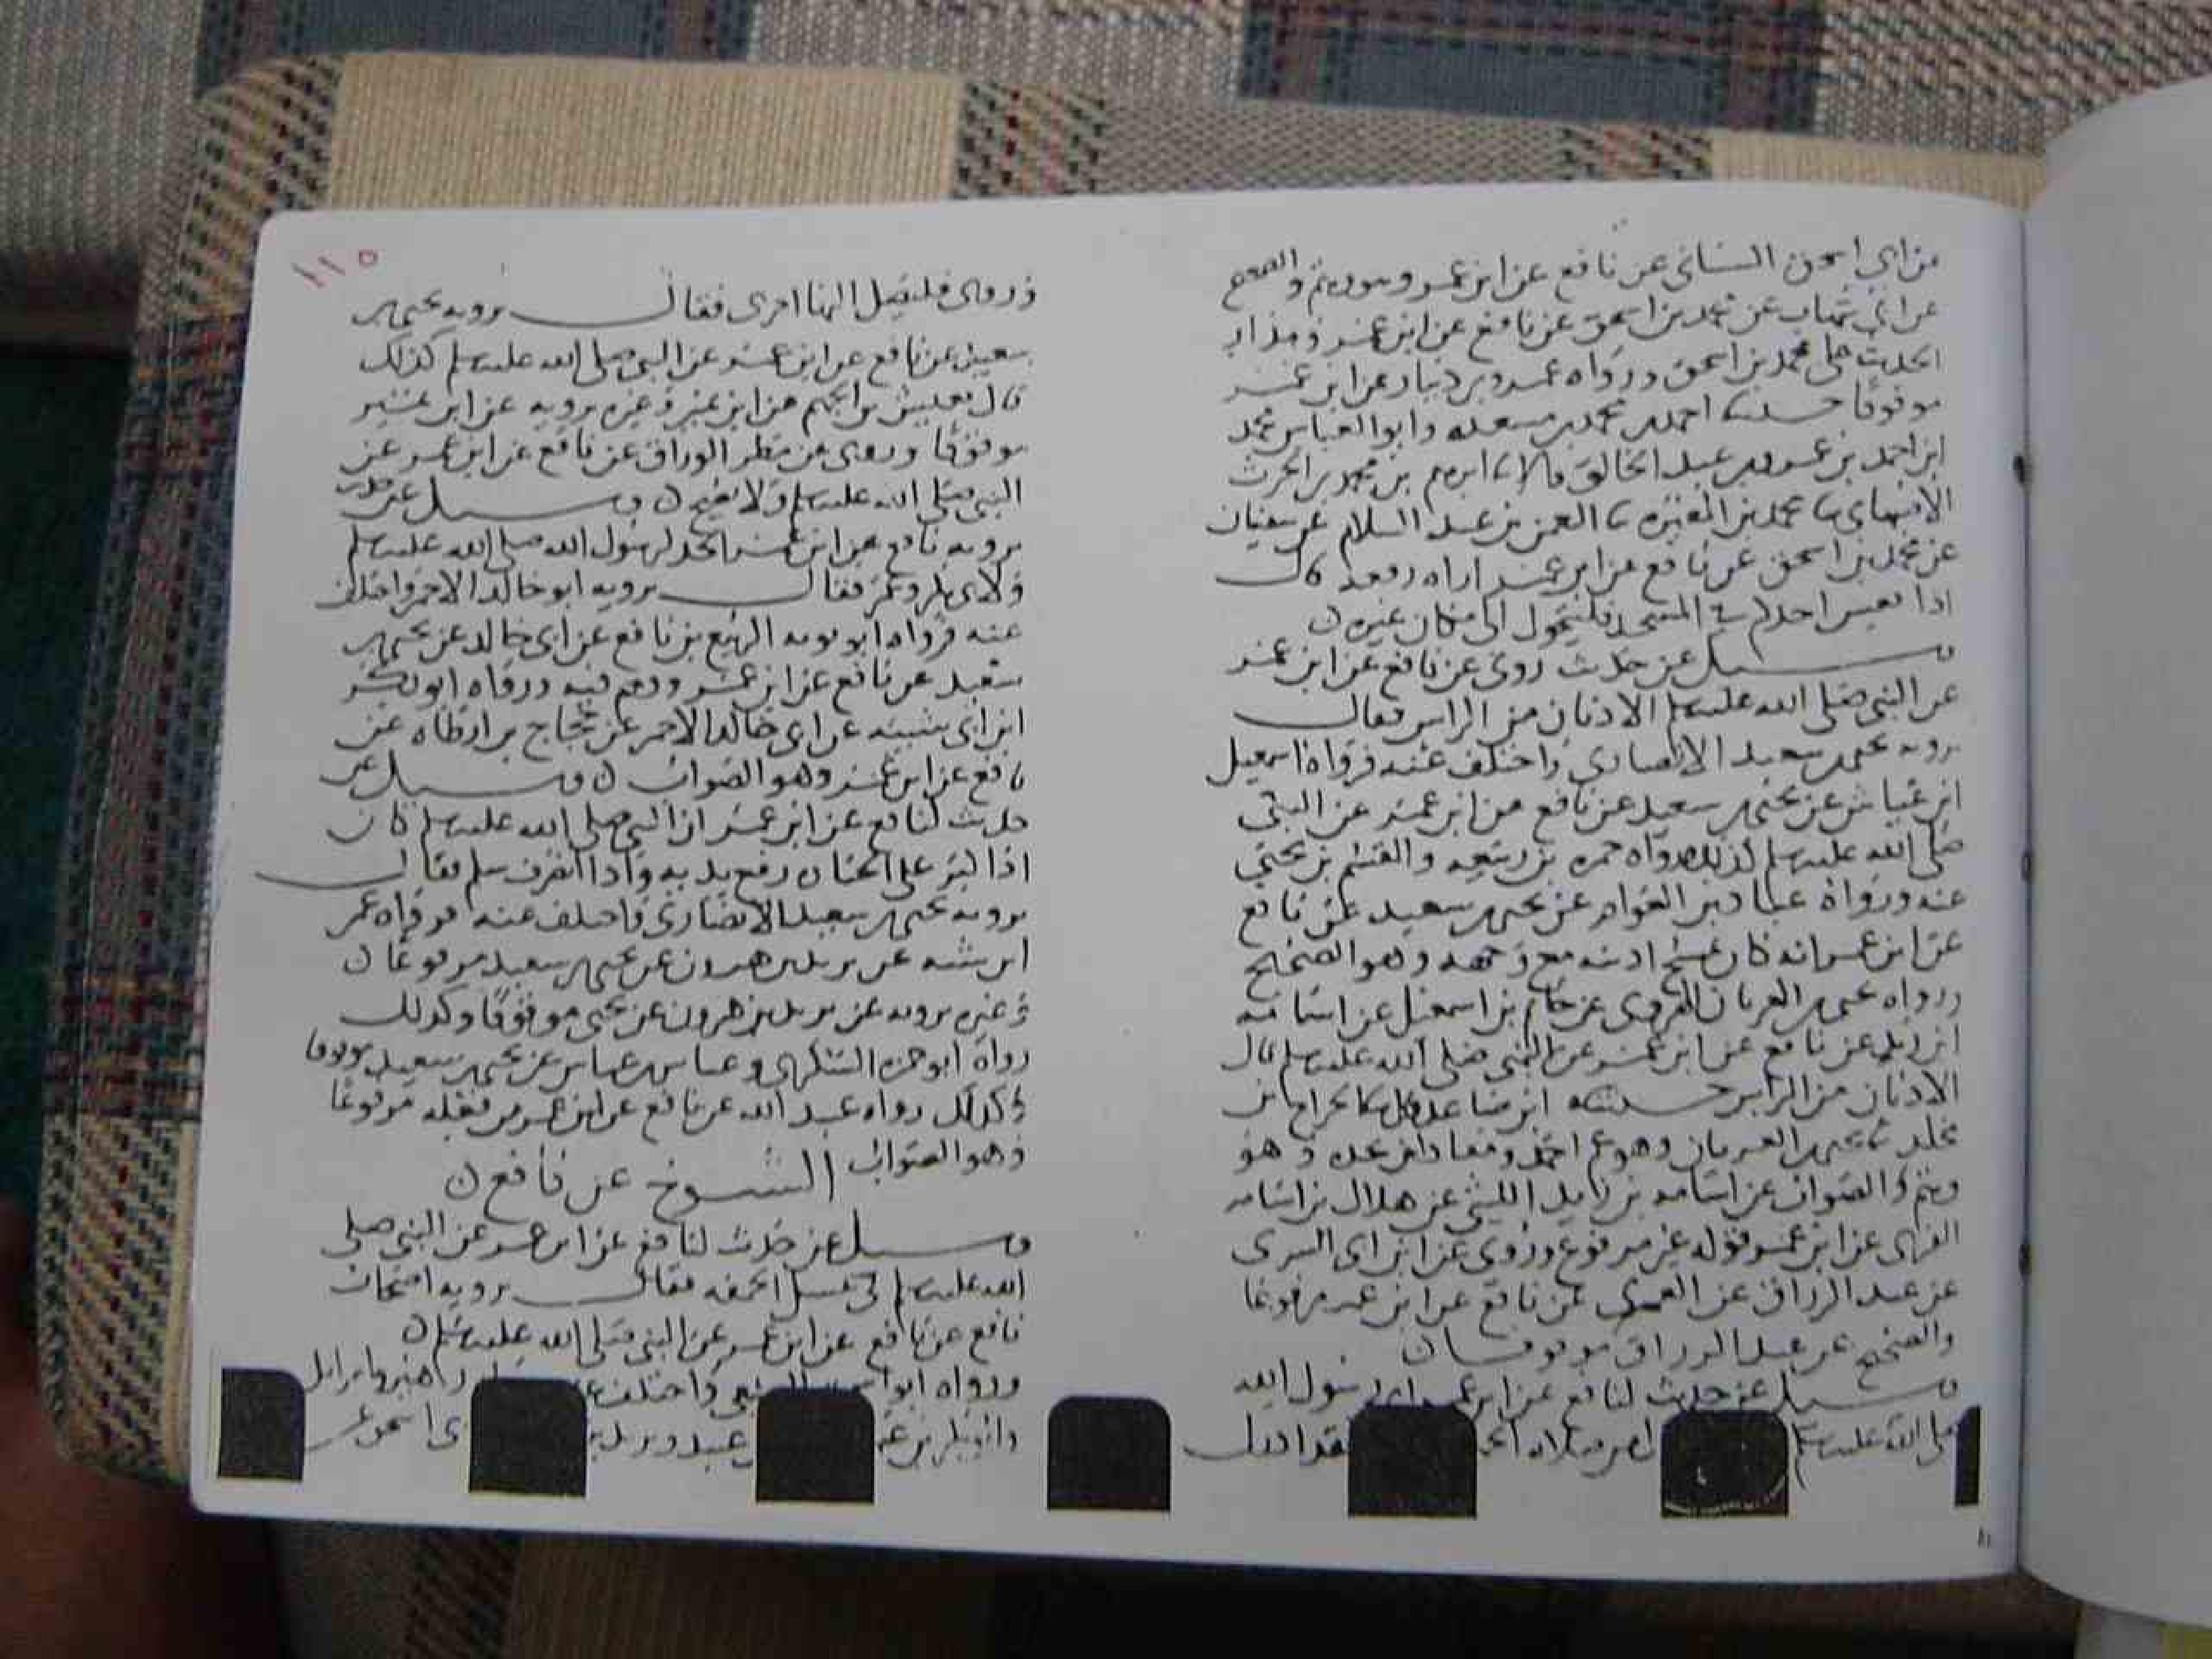 من ابي اسحق الشيباني عن نافع عن ابن عمر وهو وهم والصحيح
عن ابي شهاب عن محمد بن اسحق عن نافع عن ابن عمر ومدار
الحديث على محمد بن اسحق ورواه عمرو بن دينار عن ابن عمر
موقوفا حدثنا احمد بن محمد بن مسعدة وابو العباس محمد
ابن احمد بن عمرو بن عبد الخالق قالا ثنا ابرهيم بن محمد بن الحرث
الاصبهاني ثنا محمد بن المغيره ثنا النعمن بن عبد السلام عن سفيان
عن محمد بن اسحق عن نافع عن ابن عمر اراه رفعه قال
اذا نعس احدكم في المسجد فليتحول الى مكان غيره ن
وسيل عن حديث روى عن نافع عن ابن عمر
عن النبي صلى الله عليه وسلم الاذنان من الراس فقال
يرويه يحيى بن سعيد الانصاري واختلف عنه فرواه اسمعيل
ابن عياش عن يحيى بن سعيد عن نافع عن ابن عمر عن النبي
صلى الله عليه وسلم كذلك رواه حمزه بن ربيعه والقسم بن يحيى
عنه ورواه عباد بن العوام عن يحيى بن سعيد عن نافع
عن ابن عمر انه كان يمسح اذنيه مع وجهه وهو الصحيح
ورواه يحيى بن العريان الهروي عن حاتم بن اسمعيل عن اسامه
ابن زيد عن نافع عن ابن عمر عن النبي صلى الله عليه وسلم قال
الاذنان من الراس حدثنا ابن صاعد ثنا الجراح بن
مخلد ثنا يحيى بن العريان وهو
وهم والصواب عن اسامه بن زيد الليثي عن هلال بن اسامه
الفهري عن ابن عمر قوله غير مرفوع وروى عن ابن ابي السري
عن عبد الرزاق عن العمري عن نافع عن ابن عمر مرفوعا
والصحيح عن عبد الرزاق موقوفا ن
وسيل عن حديث لنافع عن ابن عمر ان رسول الله
صلى الله عليه وسلم
١١٥
فليصل اليها اخرى فقال يرويه يحيى بن
سعيد عن نافع عن ابن عمر عن النبي صلى الله عليه وسلم كذلك
قال يعيش بن الجهم عن ابن نمير وغيره يرويه عن ابن نمير
موقوفا وروى عن مطر الوراق عن نافع عن ابن عمر عن
النبي صلى الله عليه وسلم ولا يصح ن وسيل عن حديث
يرويه نافع عن ابن عمر الحد لرسول الله صلى الله عليه وسلم
ولابي بكر وعمر فقال يرويه ابو خالد الاحمر واختلف
عنه فرواه ابو توبه الربيع بن نافع عن ابي خالد عن يحيى بن
سعيد عن نافع عن ابن عمر ووهم فيه ورواه ابو بكر
ابن ابي شيبه عن ابي خالد الاحمر عن حجاج بن ارطاه عن
نافع عن ابن عمر وهو الصواب ن وسيل عن
حديث لنافع عن ابن عمر ان النبي صلى الله عليه وسلم كان
اذا كبر على الجنازه رفع يديه واذا انصرف سلم فقال
يرويه يحيى بن سعيد الانصاري واختلف عنه فرواه عمر
ابن شبه عن يزيد بن هرون عن يحيى بن سعيد مرفوعا ن
وغيره يرويه عن يزيد بن هرون عن يحيى موقوفا وكذلك
رواه ابو حمزه السكري عن يحيى بن سعيد موقوفا
وكذلك رواه عبيد الله عن نافع عن ابن عمر من فعله
وهو الصواب الشيوخ عن نافع ن
وسيل عن حديث لنافع عن ابن عمر عن النبي صلى
الله عليه وسلم في غسل الجمعه فقال يرويه اصحاب
نافع عن نافع عن ابن عمر عن النبي صلى الله عليه وسلم ن
ورواه ابو اسحق السبيعي واختلف عنه